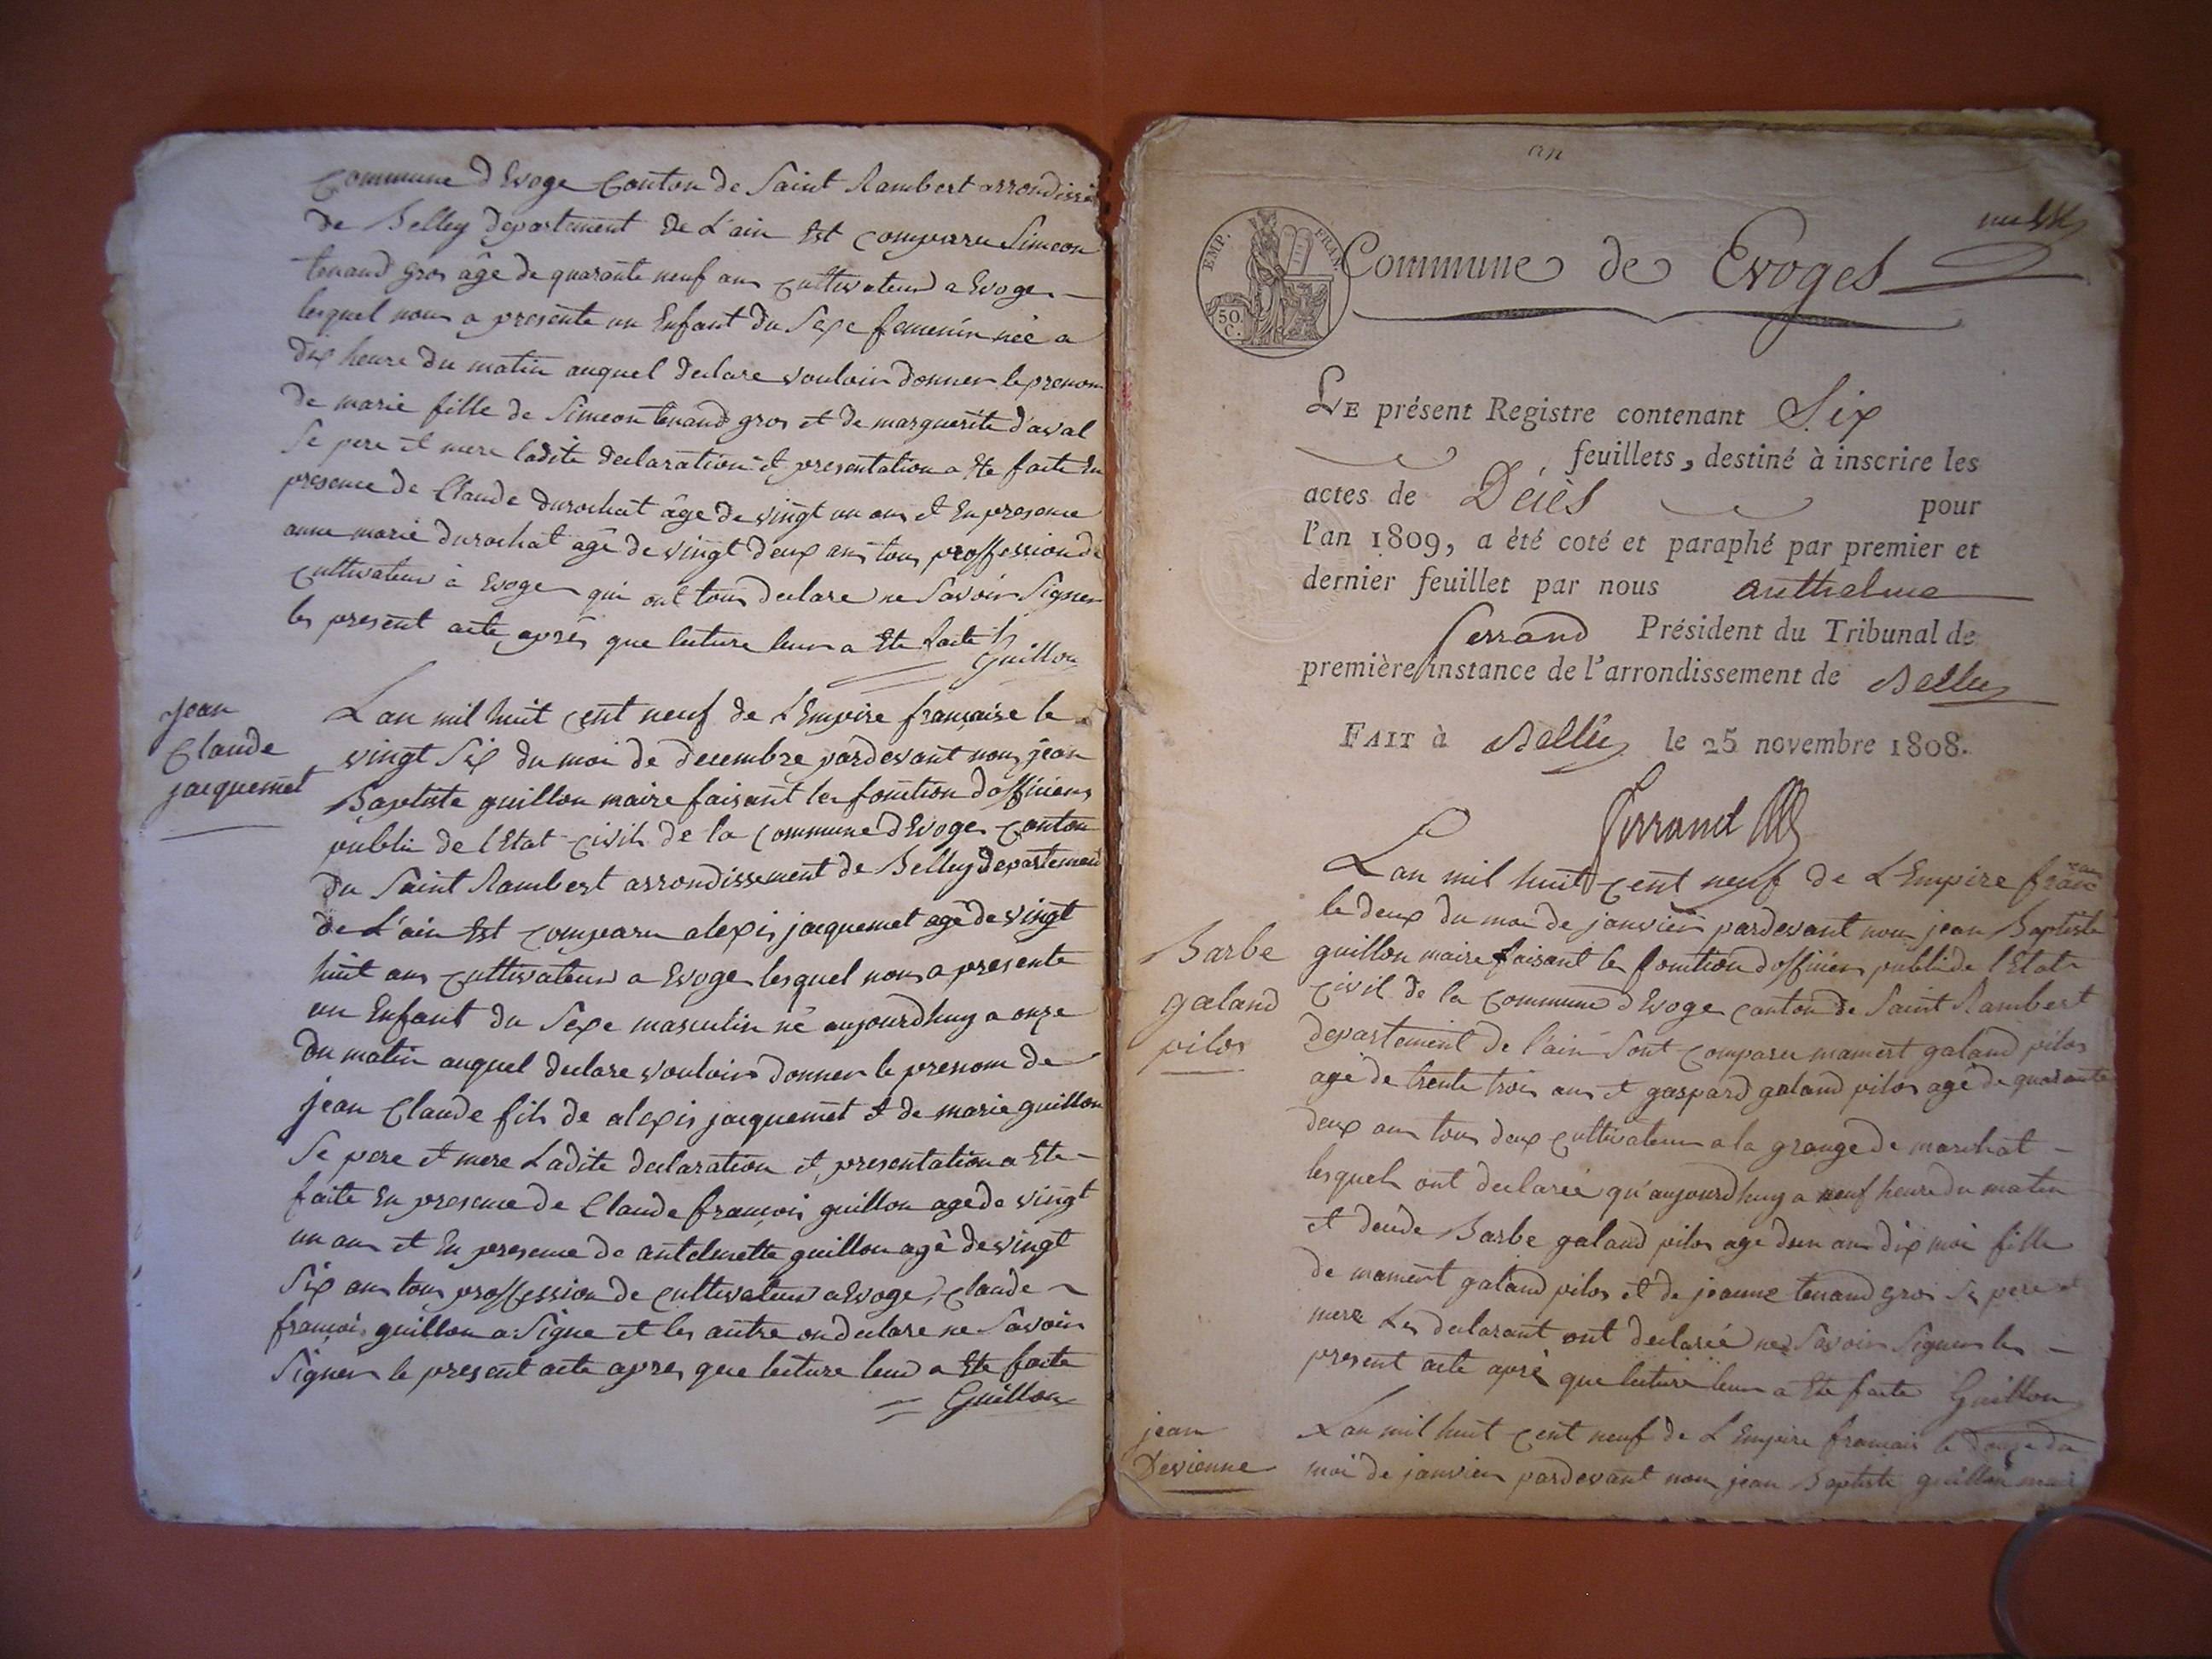 Commune d'Evoge Conton de Saint Rambert arrondissem
de Belley departement de L'ain Est comparu Simeon
tenand gros âge de quarante neuf ans cultivateur a Evoge
lesquel nous a presente un Enfant du Sexe femenin née a
dix heure du matin auquel declare vouloir donner le prenom
de marie fille de Simeon tenand gros et de marguerite d'aval
Se pere et mere ladite declaration et presentation a Ete faite En
presence de Claude durochat âge de vingt un ans et En presence
anne marie durochat agê de vingt deux ans tous proffession de
cultivateur à Evoge qui ont tous declare ne Savoir Signer
les present acte après que lecture leur a Ete faite
Guillon
jean
Claude
jacquemet
Lan mil huit cent neuf de L'Empire française le
vingt Six du moi de decembre pardevant nous jean
Baptiste guillon maire faisant les fonction d'officiers
public de l'Etat civil de la commune d'Evoge Conton
du Saint Rambert arrondissement de Belley departement
de L'ain Est comparu alexis jacquemet agê de vingt
huit ans cultivateur a Evoge lesquel nous a presente
un Enfant du Sexe masculin né aujourdhuy a onze
du matin auquel declare vouloir donner le prenom de
jean Claude fils de alexis jacquemet et de marie guillon
Se pere et mere Ladite declaration et presentation a Ete
faite En presence de Claude françois guillon age de vingt
un ans et En presence de antelmette guillon agê de vingt
Six ans tous proffession de cultivateur a Evoge, Claude
françois guillon a Signe et les autre on declare ne Savoir
Signer le present acte apres que lecture leur a Ete faite
Guillon
an
EMP. FRAN.
50 C.
Commune de Evoges
LE présent Registre contenant Six
feuillets, destiné à inscrire les
actes de Décès pour
l'an 1809, a été coté et paraphé par premier et
dernier feuillet par nous anthelme
ferrand Président du Tribunal de
première instance de l'arrondissement de Belley
FAIT à Belley le 25 novembre 1808.
ferrand
Lan mil huit cent neuf de L'Empire franc
le deux du moi de janvier pardevant nous jean Baptiste
Barbe
galand
pilos
guillon maire faisant les fonction d'officiers public de l'Etat
civil de la commune d'Evoge canton de Saint Rambert
departement de l'ain Sont comparu mamert galand pilos
agé de trente trois ans et gaspard galand pilos agê de quarante
deux ans tous deux cultivateur a la grange de marchat
lesquels ont declarée qu'aujourdhuy a neuf heure du matin
et decede Barbe galand pilos age d'un an dix moi fille
de mamert galand pilos et de jeanne tenand gros Se pere et
mere Les declarant ont declarée ne Savoir Signer les
present acte aprè que lecture leur a Ete faite Guillon
jean
Devienne
Lan mil huit cent neuf de L'Empire français le douze du
moi de janvier pardevant nous jean Baptiste guillon mair